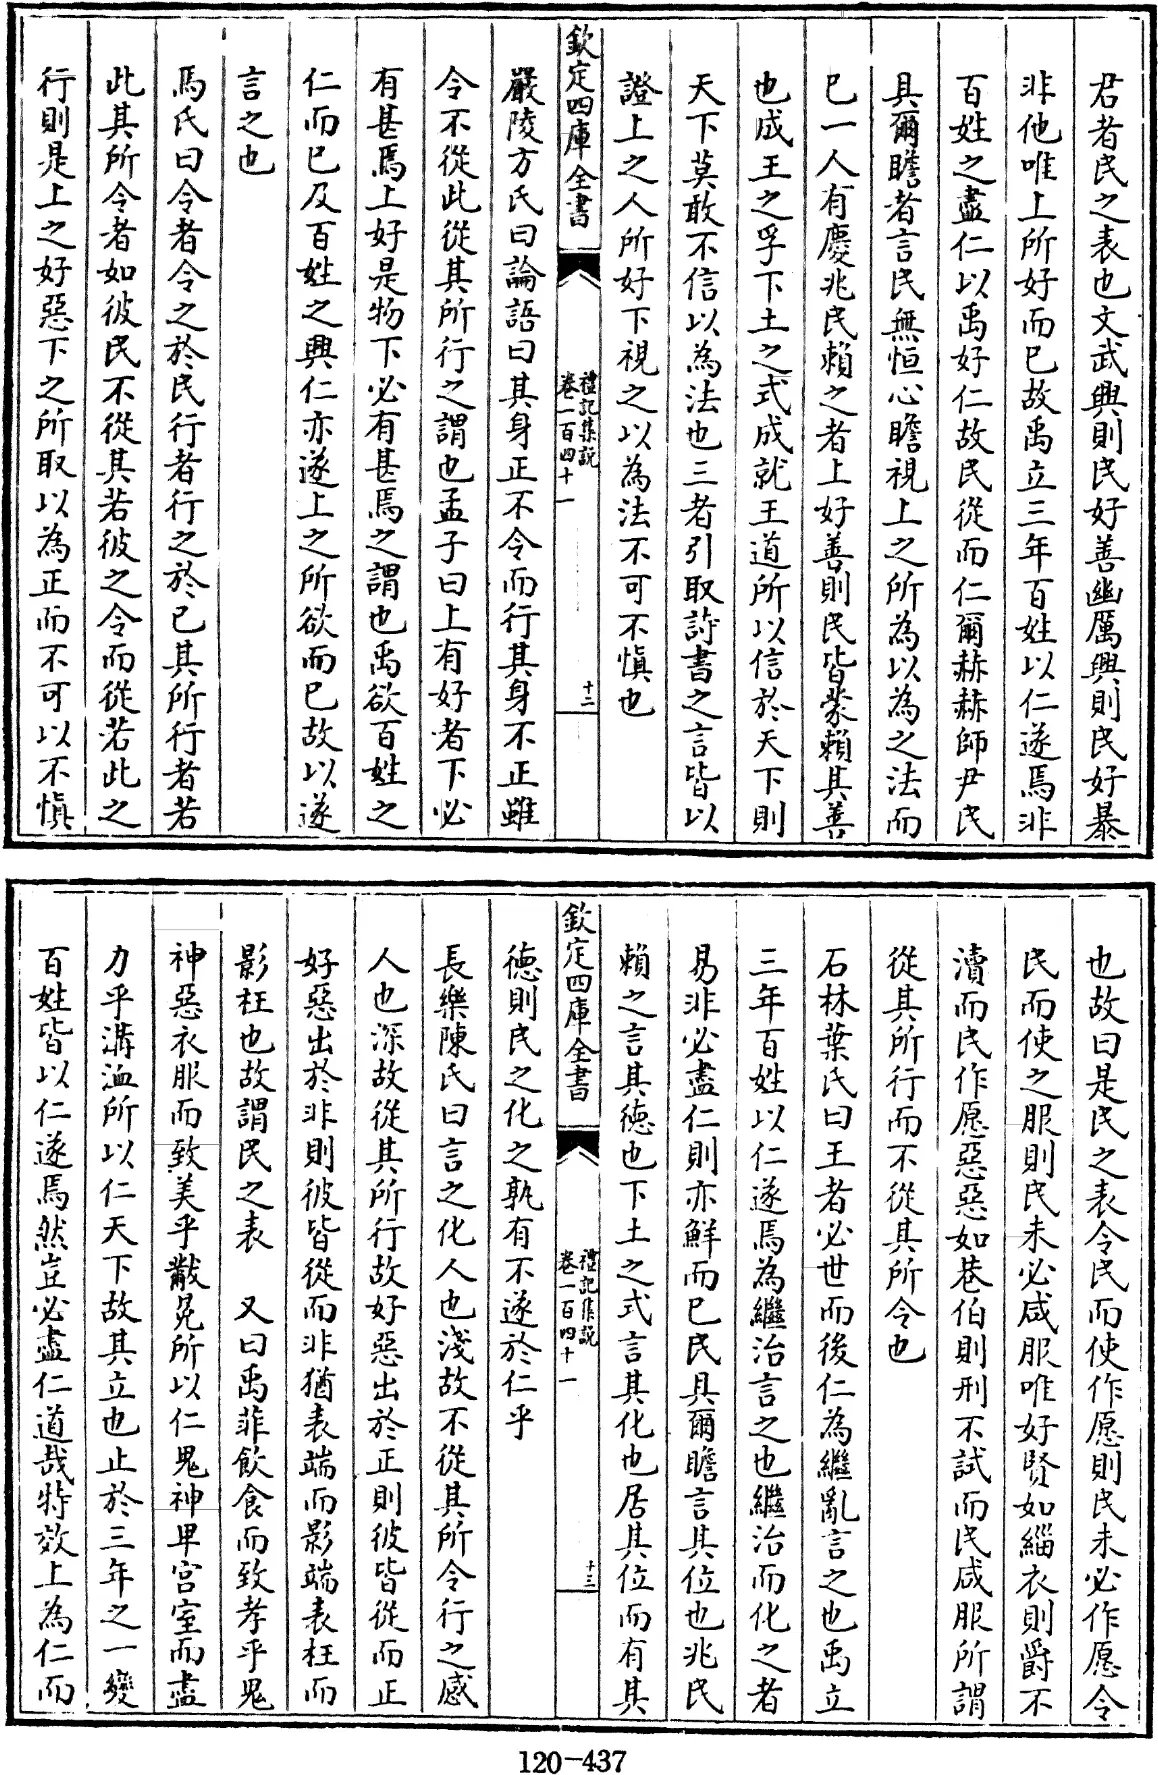 君者民之表也文武興則民好善幽厲興則民好暴
非他唯上所好而已故禹立三年百姓以仁遂焉非
百姓之盡仁以禹好仁故民從而仁爾赫赫師尹民
具爾瞻者言民無恒心瞻視上之所為以為之法而
已一人有慶兆民賴之者上好善則民皆蒙賴其善
也成王之孚下土之式成就王道所以信於天下則
天下莫敢不信以為法也三者引取詩書之言皆以
證上之人所好下視之以為法不可不慎也
欽定四庫全書
禮記集說
卷一百四十一
十二
嚴陵方氏曰論語曰其身正不令而行其身不正雖
令不從此從其所行之謂也孟子曰上有好者下必
有甚焉上好是物下必有甚焉之謂也禹欲百姓之
仁而已及百姓之興仁亦遂上之所欲而已故以遂
言之也
馬氏曰令者令之於民行者行之於已其所行者若
此其所令者如彼民不從其若彼之令而從若此之
行則是上之好惡下之所取以為正而不可以不慎
也故曰是民之表令民而使作愿則民未必作愿令
民而使之服則民未必咸服唯好賢如緇衣則爵不
瀆而民作愿惡惡如巷伯則刑不試而民咸服所謂
從其所行而不從其所令也
石林葉氏曰王者必世而後仁為繼亂言之也禹立
三年百姓以仁遂焉為繼治言之也繼治而化之者
易非必盡仁則亦鮮而已民具爾瞻言其位也兆民
賴之言其徳也下土之式言其化也居其位而有其
欽定四庫全書
禮記集說
卷一百四十一
十三
徳則民之化之孰有不遂於仁乎
長樂陳氏曰言之化人也淺故不從其所令行之感
人也深故從其所行故好惡出於正則彼皆從而正
好惡出於非則彼皆從而非猶表端而影端表枉而
影枉也故謂民之表 又曰禹菲飲食而致孝乎鬼
神惡衣服而致美乎黻冕所以仁鬼神卑宫室而盡
力乎溝洫所以仁天下故其立也止於三年之一變
百姓皆以仁遂焉然豈必盡仁道哉特效上為仁而
120-437